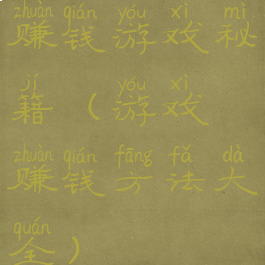 zhuàn qián yóu xì mì
赚钱游戏秘
jí yóu xì
籍（游戏
zhuàn qián fāng fǎ dà
赚钱方法大
quán
全）